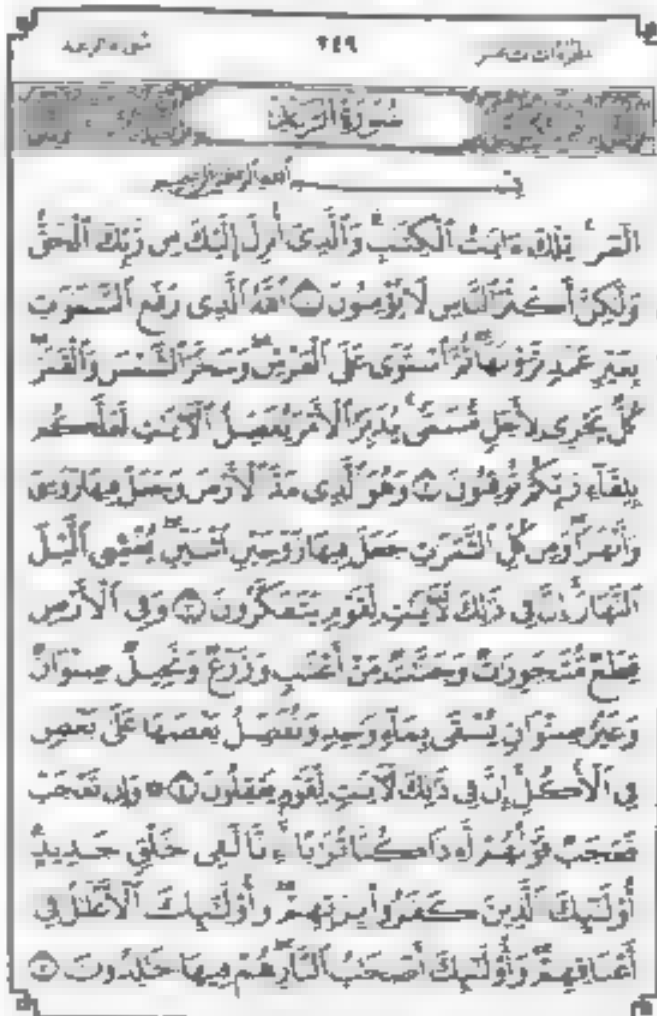 سورة الرعد ٢٤٩ الجزء الثالث عشر
سُورَةُ الرَّعْدِ
بِسْمِ اللَّهِ الرَّحْمَٰنِ الرَّحِيمِ
الٓمٓرۚ تِلۡكَ ءَايَٰتُ ٱلۡكِتَٰبِۗ وَٱلَّذِيٓ أُنزِلَ إِلَيۡكَ مِن رَّبِّكَ ٱلۡحَقُّ
وَلَٰكِنَّ أَكۡثَرَ ٱلنَّاسِ لَا يُؤۡمِنُونَ ١ ٱللَّهُ ٱلَّذِي رَفَعَ ٱلسَّمَٰوَٰتِ
بِغَيۡرِ عَمَدٖ تَرَوۡنَهَاۖ ثُمَّ ٱسۡتَوَىٰ عَلَى ٱلۡعَرۡشِۖ وَسَخَّرَ ٱلشَّمۡسَ وَٱلۡقَمَرَۖ
كُلّٞ يَجۡرِي لِأَجَلٖ مُّسَمّٗىۚ يُدَبِّرُ ٱلۡأَمۡرَ يُفَصِّلُ ٱلۡأٓيَٰتِ لَعَلَّكُم
بِلِقَآءِ رَبِّكُمۡ تُوقِنُونَ ٢ وَهُوَ ٱلَّذِي مَدَّ ٱلۡأَرۡضَ وَجَعَلَ فِيهَا رَوَٰسِيَ
وَأَنۡهَٰرٗاۖ وَمِن كُلِّ ٱلثَّمَرَٰتِ جَعَلَ فِيهَا زَوۡجَيۡنِ ٱثۡنَيۡنِۖ يُغۡشِي ٱلَّيۡلَ
ٱلنَّهَارَۚ إِنَّ فِي ذَٰلِكَ لَأٓيَٰتٖ لِّقَوۡمٖ يَتَفَكَّرُونَ ٣ وَفِي ٱلۡأَرۡضِ
قِطَعٞ مُّتَجَٰوِرَٰتٞ وَجَنَّٰتٞ مِّنۡ أَعۡنَٰبٖ وَزَرۡعٞ وَنَخِيلٞ صِنۡوَانٞ
وَغَيۡرُ صِنۡوَانٖ يُسۡقَىٰ بِمَآءٖ وَٰحِدٖ وَنُفَضِّلُ بَعۡضَهَا عَلَىٰ بَعۡضٖ
فِي ٱلۡأُكُلِۚ إِنَّ فِي ذَٰلِكَ لَأٓيَٰتٖ لِّقَوۡمٖ يَعۡقِلُونَ ٤ ۞ وَإِن تَعۡجَبۡ
فَعَجَبٞ قَوۡلُهُمۡ أَءِذَا كُنَّا تُرَٰبًا أَءِنَّا لَفِي خَلۡقٖ جَدِيدٍۗ
أُوْلَٰٓئِكَ ٱلَّذِينَ كَفَرُواْ بِرَبِّهِمۡۖ وَأُوْلَٰٓئِكَ ٱلۡأَغۡلَٰلُ فِيٓ
أَعۡنَاقِهِمۡۖ وَأُوْلَٰٓئِكَ أَصۡحَٰبُ ٱلنَّارِۖ هُمۡ فِيهَا خَٰلِدُونَ ٥